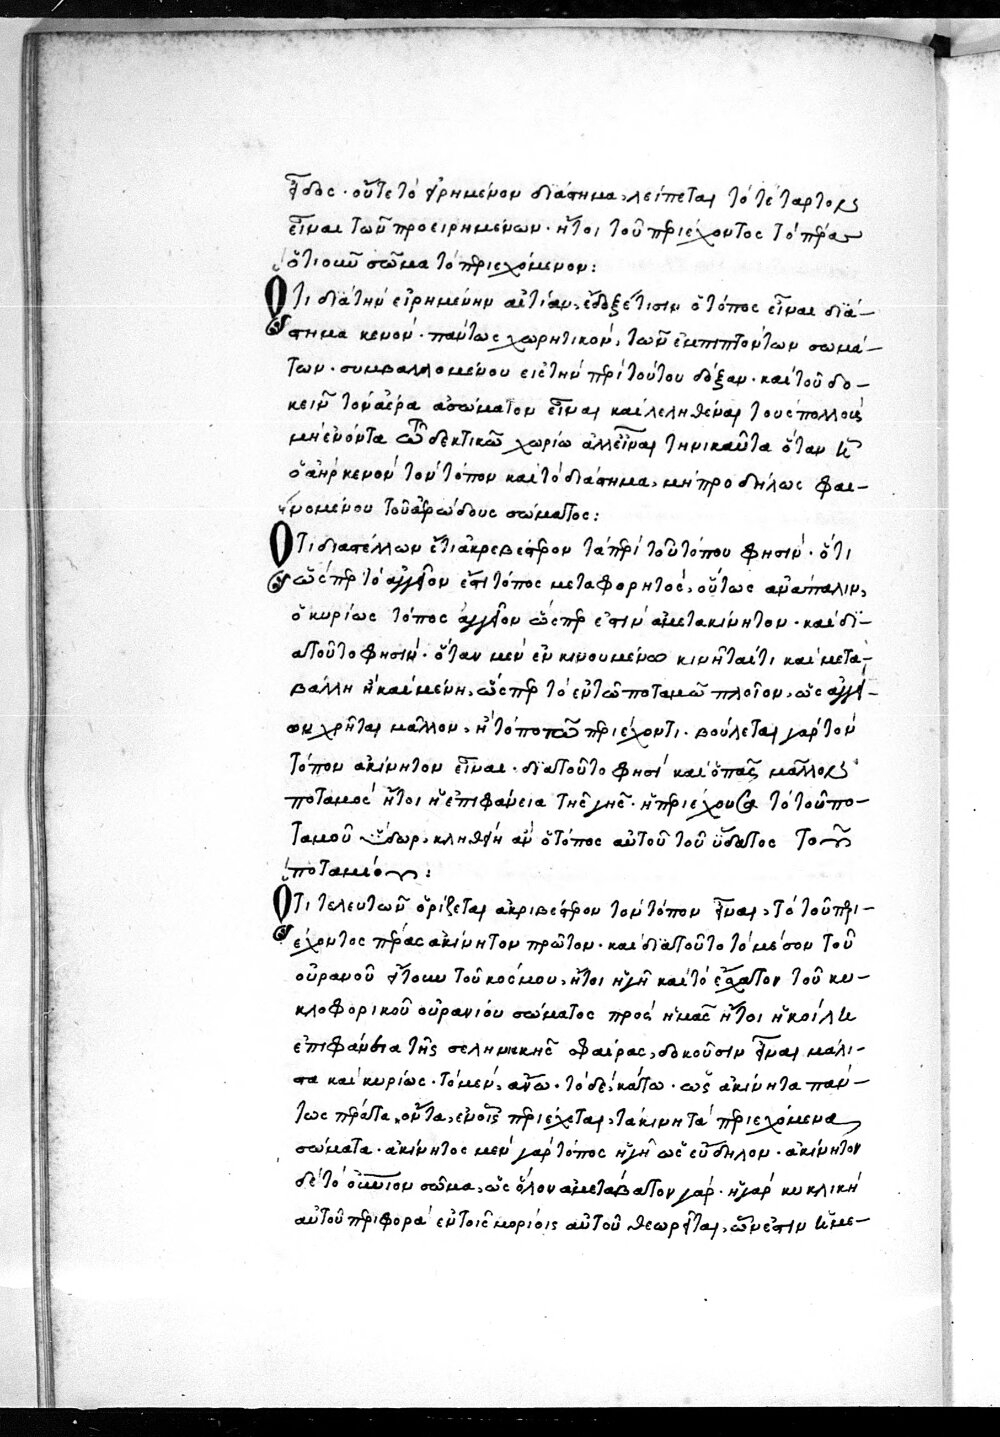 εἶδος· οὔτε τὸ εἰρημένον διάστημα, λείπεται τὸ τέταρτον
εἶναι τῶν προειρημένων· ἤτοι τοῦ περιέχοντος τὸ πέρας
ὁτιοῦν σῶμα τὸ περιεχόμενον:
Ὅτι διὰ τὴν εἰρημένην αἰτίαν, ἔδοξέ τισιν ὁ τόπος εἶναι διά-
στημα κενόν· πάντως χωρητικόν, τῶν ἐμπιπτόντων σωμά-
των· συμβαλλομένου εἰς τὴν περὶ τούτου δόξαν· καὶ τοῦ δο-
κεῖν τὸν ἀέρα ἀσώματον εἶναι καὶ λεληθέναι τοὺς πολλοὺς
μὴ ἐνόντα τῷ δεκτικῷ χωρίῳ ἀλλ' εἶναι τηνικαῦτα ὅταν ᾖ
ὁ ἀὴρ κενὸν τὸν τόπον καὶ τὸ διάστημα, μὴ προδήλως φαι-
νομένου τοῦ ἀερώδους σώματος:
Ὅτι διαστέλλων ἔτι ἀκριβέστερον τὰ περὶ τοῦ τόπου φησίν· ὅτι
ὥσπερ τὸ ἀγγεῖον ἐστὶ τόπος μεταφορητός, οὕτως ἀνάπαλιν,
ὁ κυρίως τόπος ἀγγεῖον ὥσπερ ἐστὶν ἀμετακίνητον· καὶ δι-
ὰ τοῦτο φησίν· ὅταν μὲν ἐν κινουμένῳ κινῆταί τι καὶ μετα-
βάλλῃ ἢ καὶ μένῃ, ὥσπερ τὸ ἐν τῷ ποταμῷ πλοῖον, ὡς ἀγγεί-
ῳ χρῆται μᾶλλον, ἢ τόπῳ τῷ περιέχοντι· βούλεται γὰρ τὸν
τόπον ἀκίνητον εἶναι· διὰ τοῦτο φησὶ καὶ ὁ πᾶς μᾶλλον
ποταμὸς ἤτοι ἡ ἐπιφάνεια τῆς γῆς· ἡ περιέχουσα τὸ τοῦ πο-
ταμοῦ ὕδωρ, κληθείη ἂν ὁ τόπος αὐτοῦ τοῦ ὕδατος τοῦ
ποταμίου:
Ὅτι τελευτῶν ὁρίζεται ἀκριβέστερον τὸν τόπον εἶναι, τὸ τοῦ περι-
έχοντος πέρας ἀκίνητον πρῶτον· καὶ διὰ τοῦτο τὸ μέσον τοῦ
οὐρανοῦ ἤτοι τοῦ κόσμου, ἤτοι ἡ γῆ καὶ τὸ ἔσχατον τοῦ κυ-
κλοφορικοῦ οὐρανίου σώματος πρὸς ἡμᾶς ἤτοι ἡ κοίλη
ἐπιφάνεια τῆς σεληνιακῆς σφαίρας, δοκοῦσιν εἶναι μάλι-
στα καὶ κυρίως· τὸ μὲν, ἄνω· τὸ δὲ, κάτω· ὡς ἀκίνητα πάν-
τως πέρατα ὄντα, ἐν οἷς περιέχεται, τὰ κινητὰ περιεχόμενα
σώματα· ἀκίνητος μὲν γὰρ τόπος ἡ γῆ ὡς εὔδηλον· ἀκίνητον
δὲ τὸ οὐράνιον σῶμα, ὡς ὅλον ἀμετάβατον γάρ· ἡ γὰρ κυκλικὴ
αὐτοῦ περιφορὰ ἐν τοῖς μορίοις αὐτοῦ θεωρεῖται, ὧν ἐστιν ἡ με-